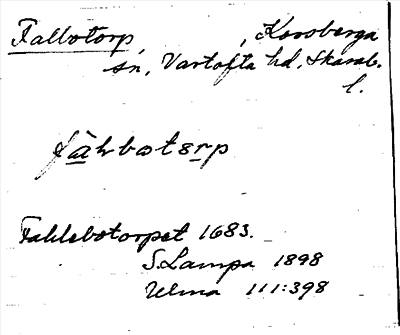 Falbotorp, , Korsberga
sn, Vartofta hd, Skarab.
l.
fàhbotẹrp
Fahlebotorpet 1683.
S. Lampa 1898
Ulma 111:398